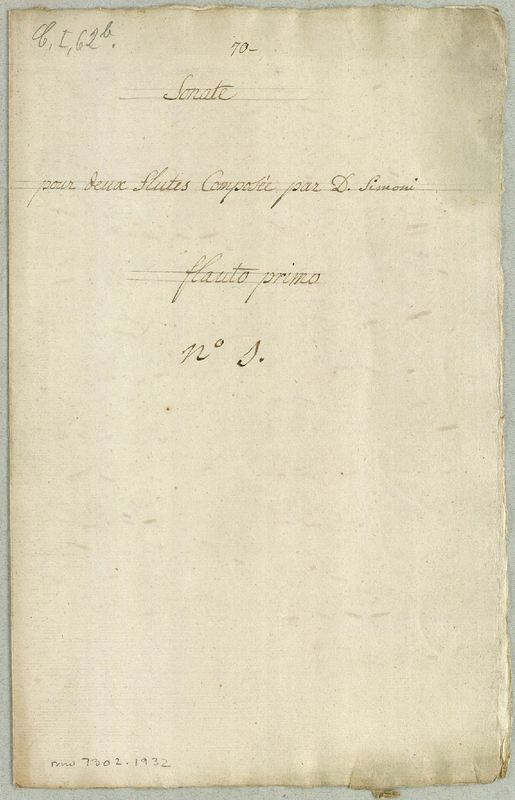 C, I, 62 b.
70-
Sonate
pour deux flutes Composée par D. Simoni
flauto primo
no 1.
7302.1932